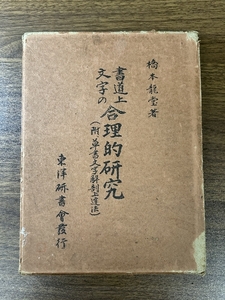 橋本龍堂著
書道上
文字の
合理的研究
(附 草書文字解剖上達法)
東洋研書會發行